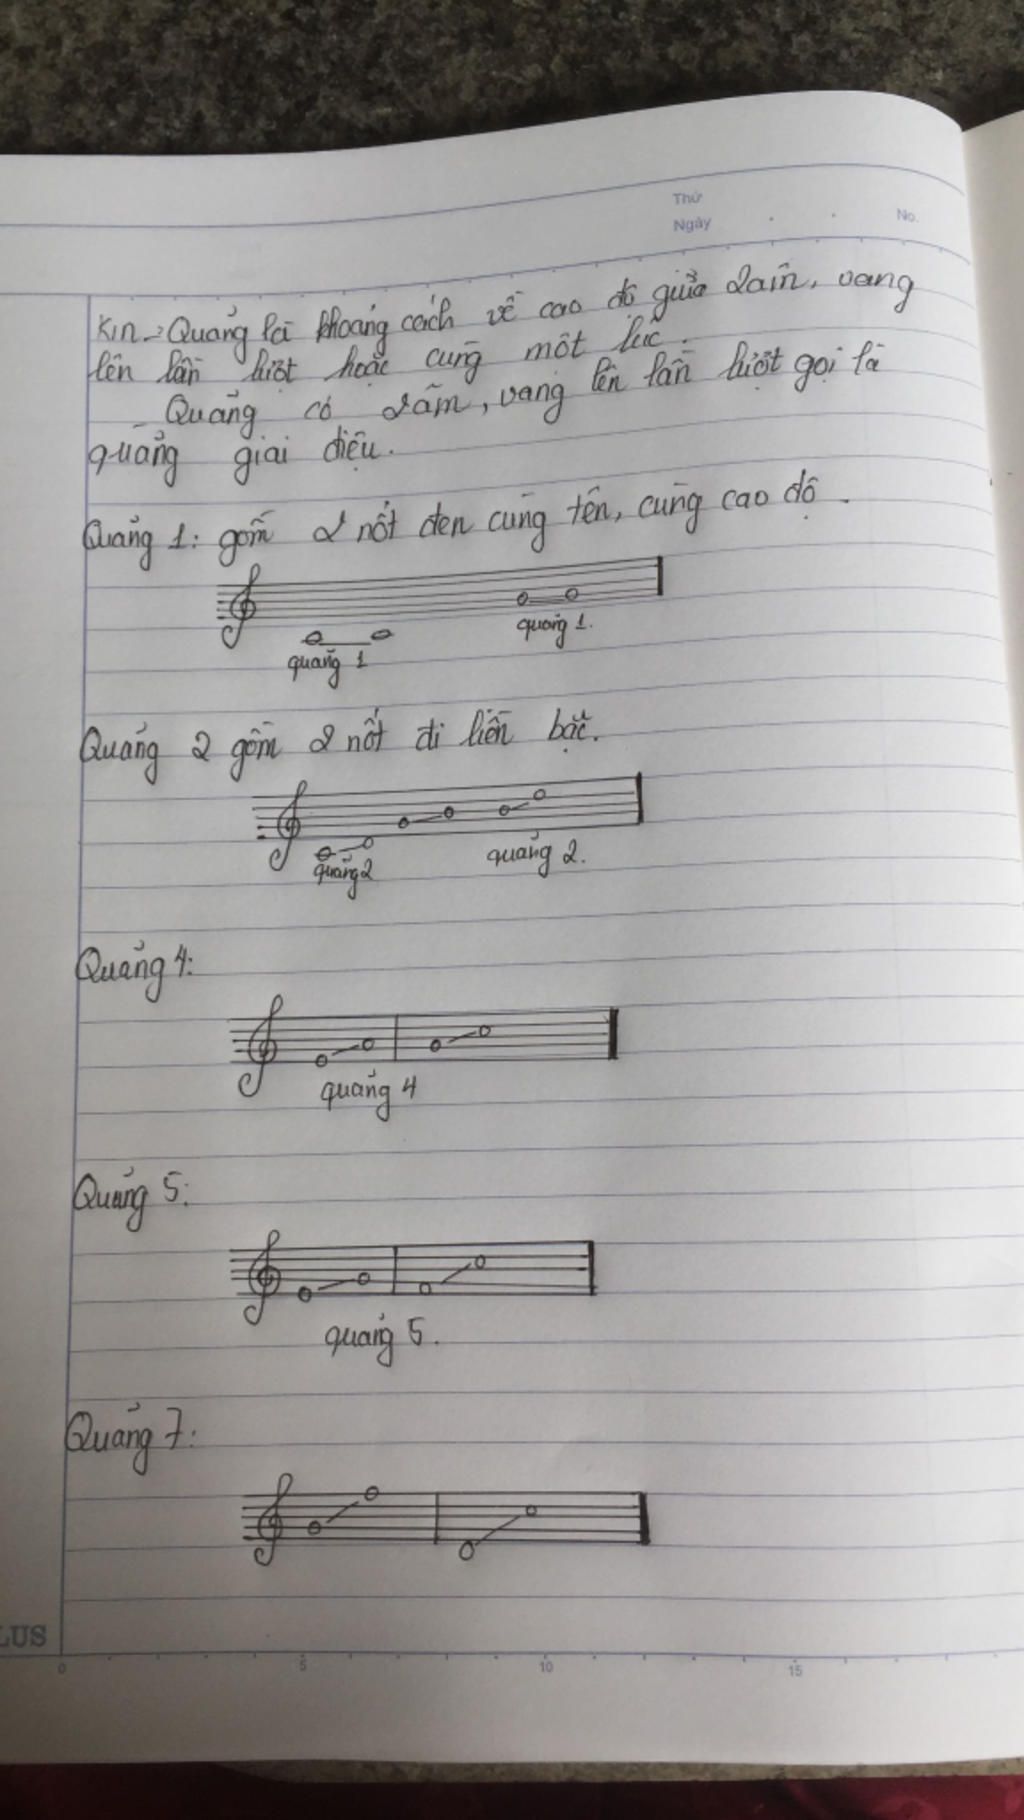 Thứ
Ngày
No.
KN → Quãng là khoảng cách về cao độ giữa 2 âm, vang
lên lần lượt hoặc cùng một lúc.
Quãng có 2 âm, vang lên lần lượt gọi là
quãng giai điệu.
Quãng 1: gồm 2 nốt đen cùng tên, cùng cao độ.
quãng 1.
quãng 1
Quãng 2 gồm 2 nốt đi liền bậc.
quãng 2
quãng 2.
Quãng 4:
quãng 4
Quãng 5:
quãng 5.
Quãng 7:
LUS
0 5 10 15